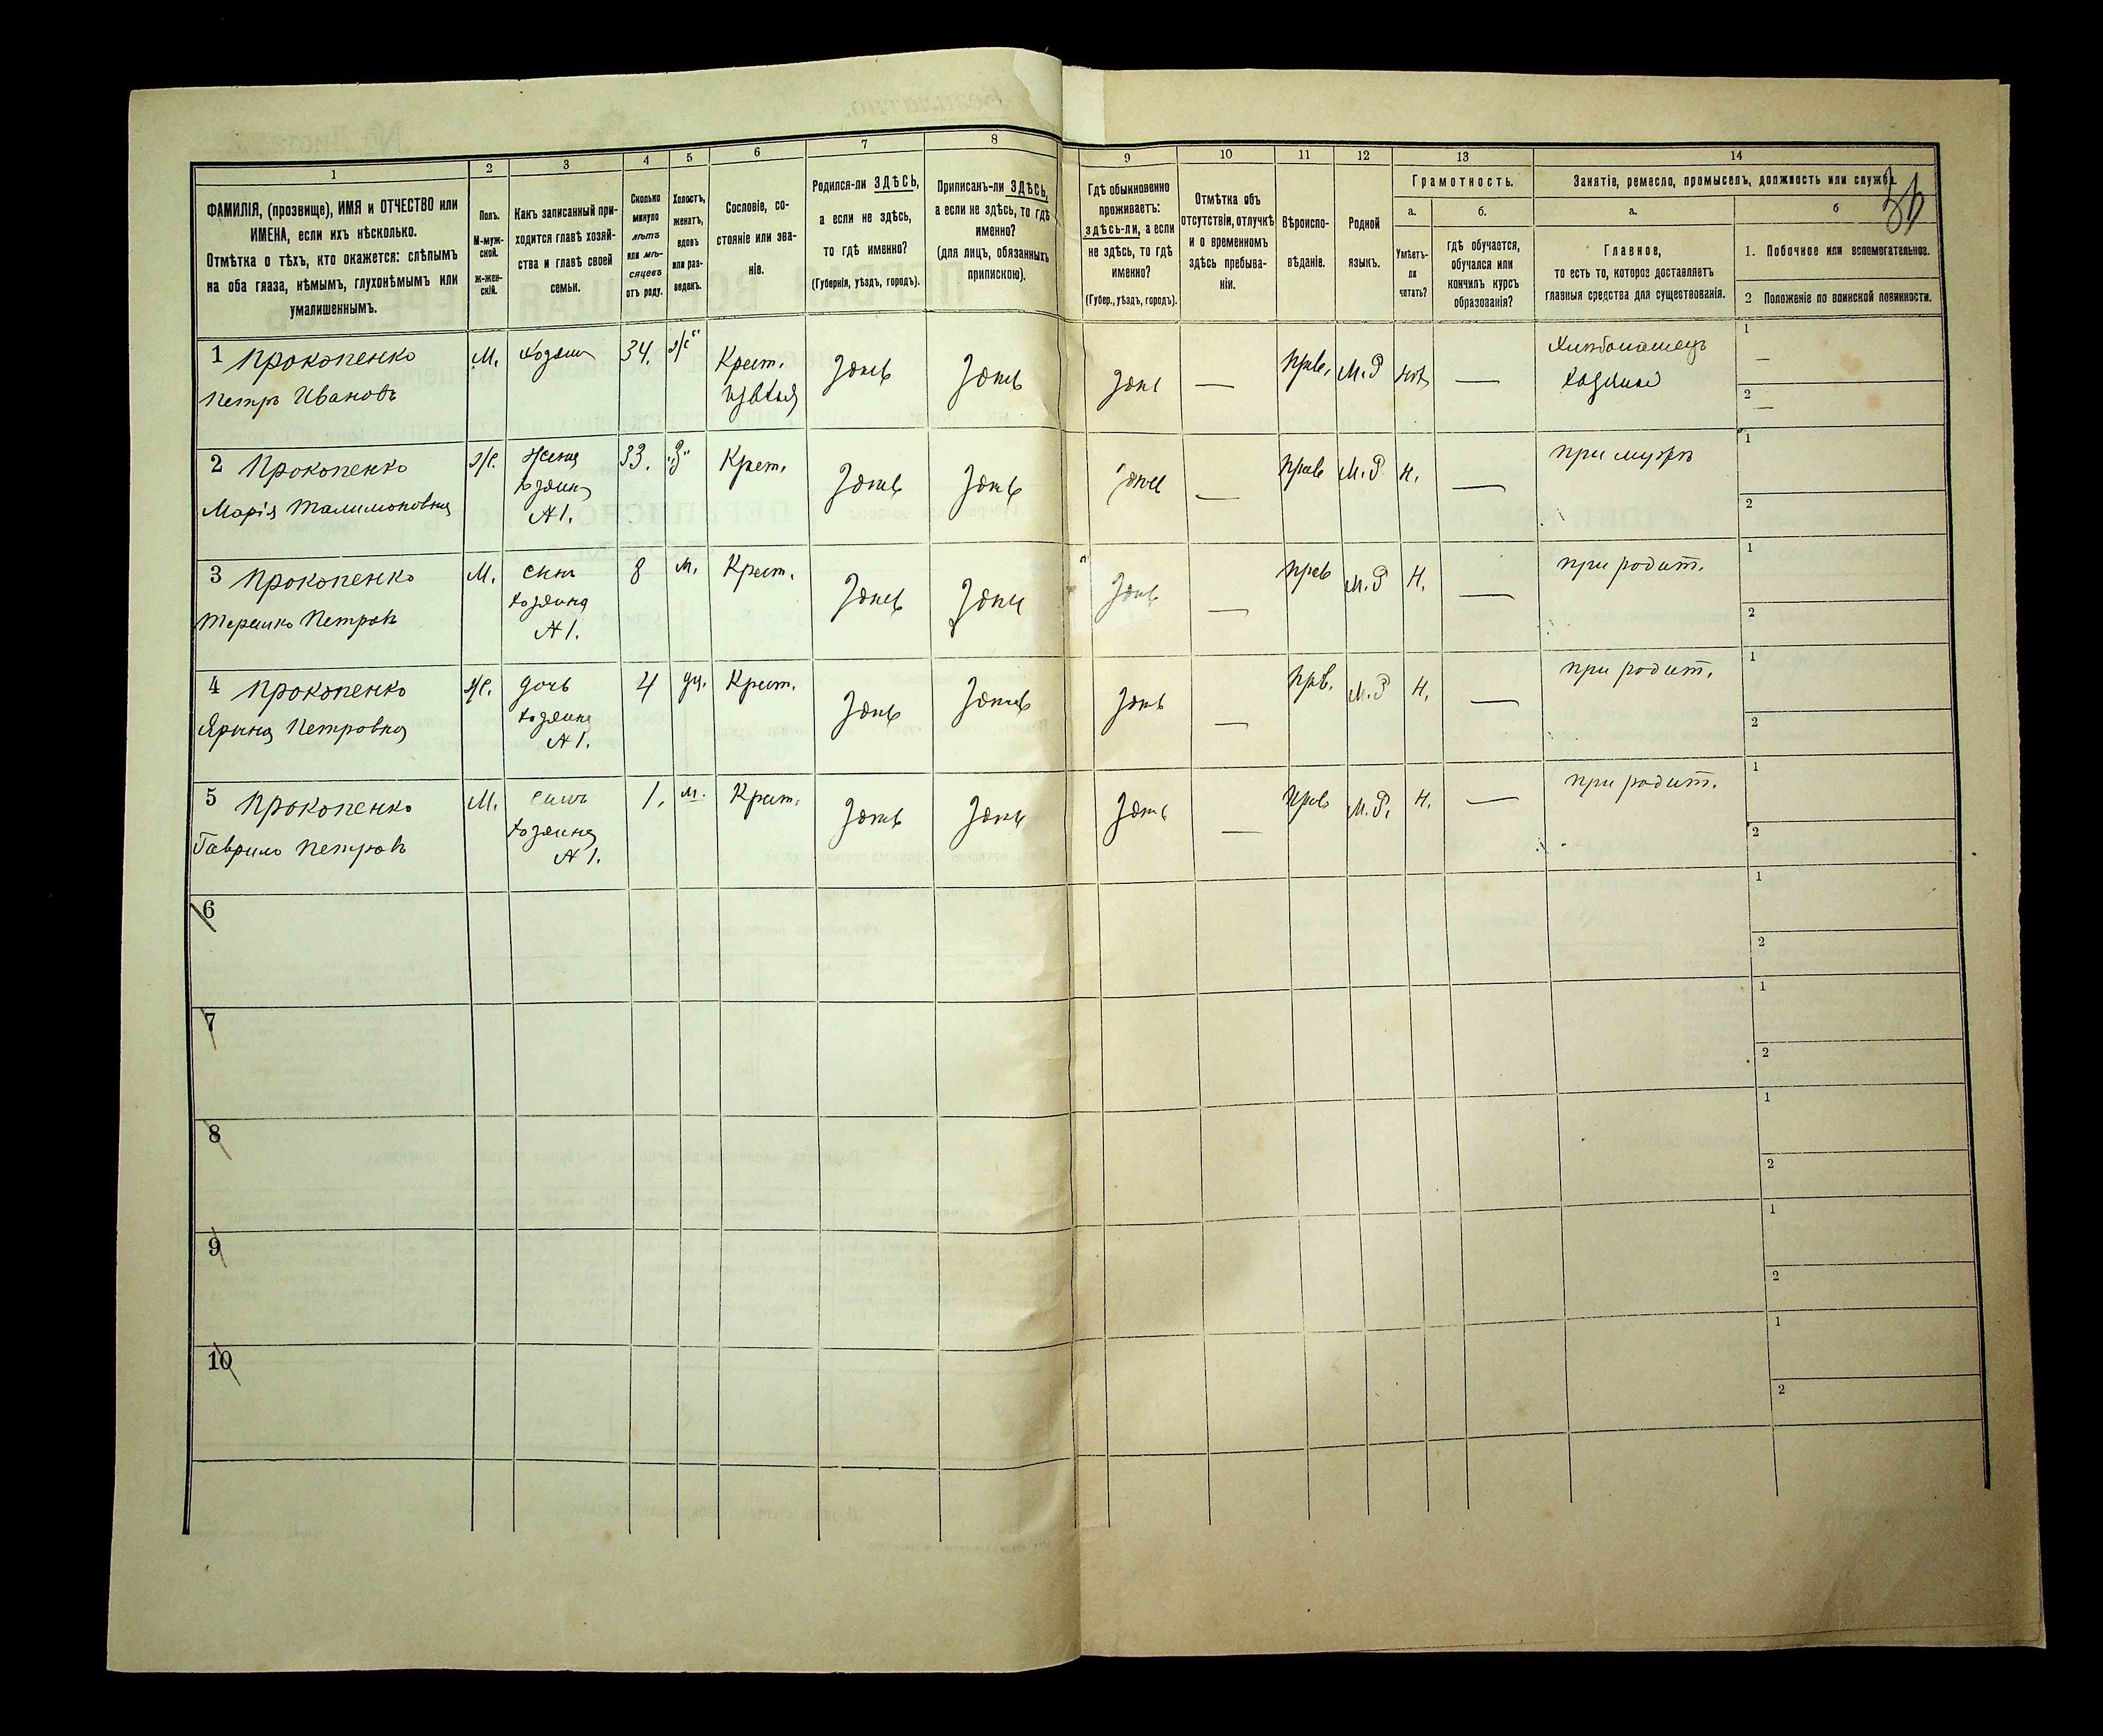 1 2 3 4 5 6 7 8 9 10 11 12 13 14
ФАМИЛІЯ, (прозвище), ИМЯ и ОТЧЕСТВО или
ИМЕНА, если ихъ нѣсколько.
Отмѣтка о тѣхъ, кто окажется: слѣпымъ
на оба глаза, нѣмымъ, глухонѣмымъ или
умалишеннымъ.
Полъ.
М-муж-
ской.
Ж-жен-
скій.
Какъ записанный при-
ходится главѣ хозяй-
ства и главѣ своей
семьи.
Сколько
минуло
лѣтъ
или мѣ-
сяцевъ
отъ роду.
Холостъ,
женатъ,
вдовъ
или раз-
веденъ.
Сословіе, со-
стояніе или зва-
ніе.
Родился-ли ЗДѢСЬ,
а если не здѣсь,
то гдѣ именно?
(Губернія, уѣздъ, городъ).
Приписанъ-ли ЗДѢСЬ,
а если не здѣсь, то гдѣ
именно?
(для лицъ, обязанныхъ
припискою).
Гдѣ обыкновенно
проживаетъ:
здѣсь-ли, а если
не здѣсь, то гдѣ
именно?
(Губер., уѣздъ, городъ).
Отмѣтка объ
отсутствіи, отлучкѣ
и о временномъ
здѣсь пребыва-
ніи.
Вѣроиспо-
вѣданіе.
Родной
языкъ.
Грамотность.
а.
Умѣетъ-
ли
читать?
б.
гдѣ обучается,
обучался или
кончилъ курсъ
образованія?
Занятіе, ремесло, промыселъ, должность или служба.
а.
Главное,
то есть то, которое доставляетъ
главныя средства для существованія.
б
1. Побочное или вспомогательное.
2 Положеніе по воинской повинности.
1 Прокопенко М. хозяин 34. Крест. Здѣсь Здѣсь Здѣсь — Прав. М.Р нѣт — 1 —
Петръ Ивановъ хозяинъ 2 —
2 Прокопенко Ж. Жена 33. З Крест. Здѣсь Здѣсь Здѣсь — Прав М.Р Н. — при мужѣ 1
Марія хозяина 2
№ 1.
3 Прокопенко М. Сынъ 8 Крест. Здѣсь Здѣсь Здѣсь — Прав М.Р Н. — при родит. 1
Терешко Петровъ хозяина 2
№ 1.
4 Прокопенко Ж. дочь 4 Крест. Здѣсь Здѣсь Здѣсь — Прав. М.Р Н. — при родит. 1
Ярына Петровна хозяина 2
№ 1.
5 Прокопенко М. Сынъ 1. Крест. Здѣсь Здѣсь Здѣсь — Прав М.Р. Н. — при родит. 1
Гаврило Петровъ хозяина 2
№ 1.
6 1
2
7 1
2
8 1
2
9 1
2
10 1
2